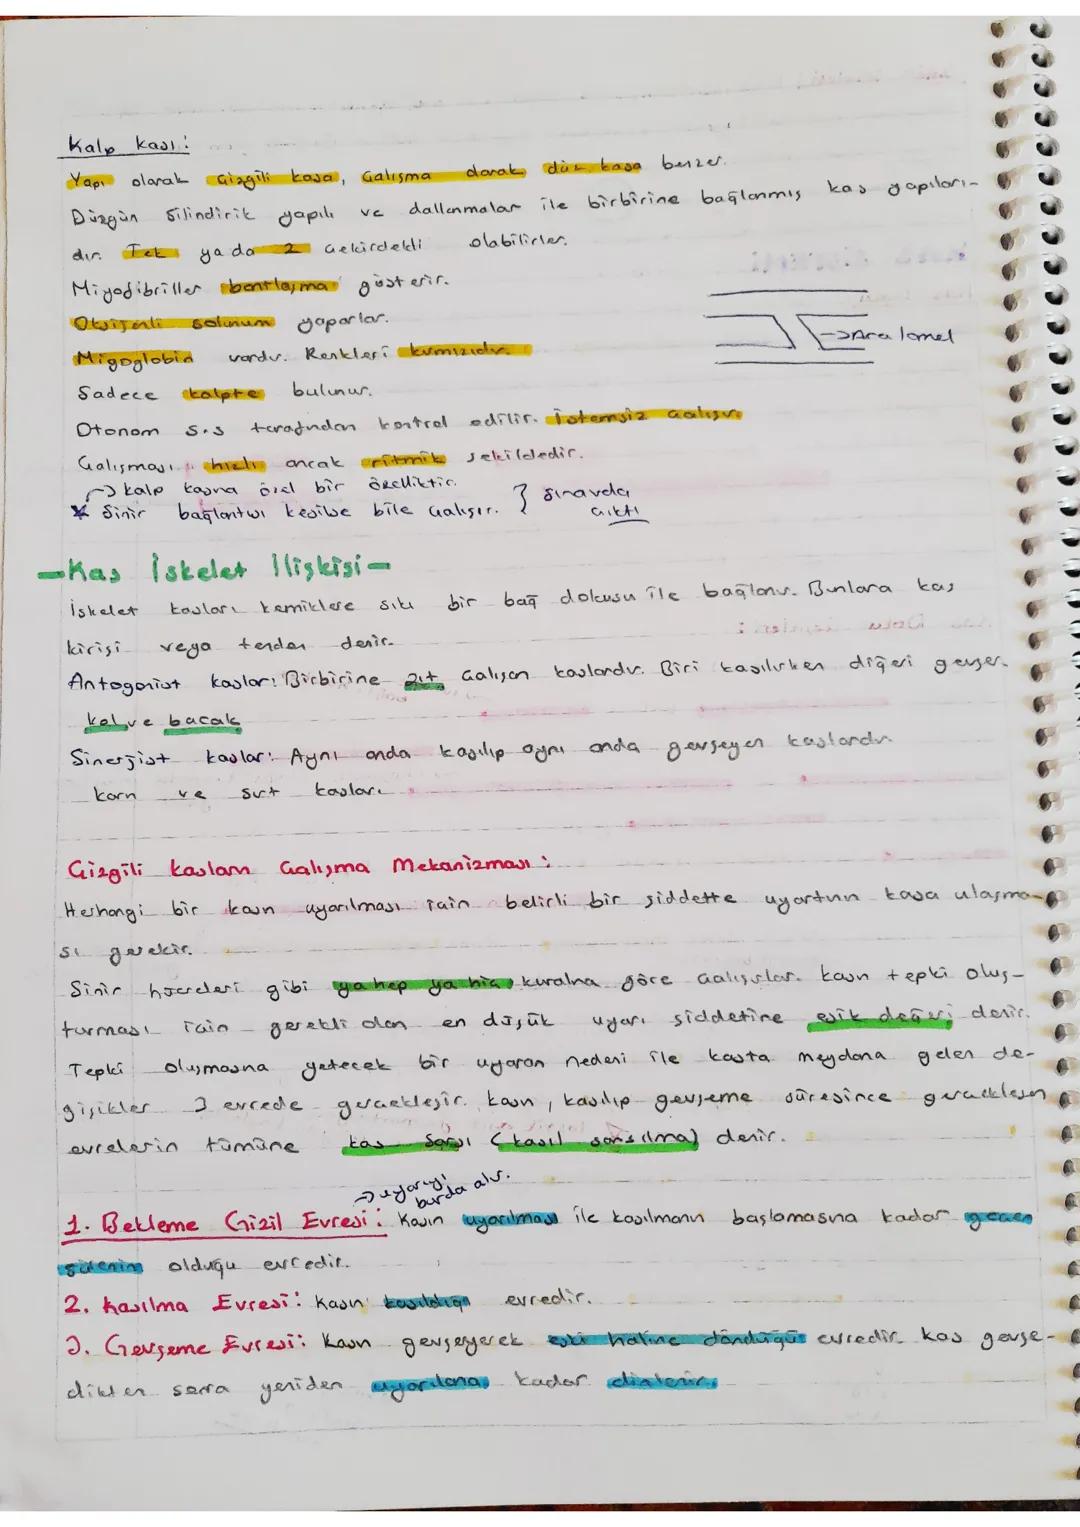 Kalp kası:
Yapı olarak Çizgili kasa, Çalışma olarak düz kasa benzer.
Düzgün silindirik yapılı ve dallanmalar ile birbirine bağlanmış kas yapıları-
dır. Tek ya da 2 çekirdekli olabilirler.
Miyofibriller bantlaşma gösterir.
Oksijenli solunum yaparlar.
→Ara lamel
Miyoglobin vardır. Renkleri kırmızıdır.
Sadece kalpte bulunur.
Otonom s.s tarafından kontrol edilir. İstemsiz çalışır.
Çalışması hızlı ancak ritmik şekildedir.
→ kalp kasına özel bir özelliktir.
* Sinir bağlantısı kesilse bile çalışır. } sınavda
çıktı
-Kas İskelet İlişkisi-
İskelet kasları kemiklere sıkı bir bağ dokusu ile bağlanır. Bunlara kas
kirişi veya tendon denir.
Antagonist kaslar: Birbirine zıt çalışan kaslardır. Biri kasılırken diğeri gevşer.
kol ve bacak
Sinerjist kaslar: Aynı anda kasılıp aynı anda gevşeyen kaslardır.
karın ve sırt kasları
Çizgili kasların Çalışma Mekanizması:
Herhangi bir kasın uyarılması için belirli bir şiddette uyartının kasa ulaşma-
sı gerekir.
Sinir hücreleri gibi ya hep ya hiç kuralına göre çalışırlar. Kasın tepki oluş-
turması için gerekli olan en düşük uyarı şiddetine eşik değeri denir.
Tepki oluşmasına yetecek bir uyaran nedeni ile kasta meydana gelen de-
ğişikler 3 evrede gerçekleşir. Kasın, kasılıp gevşeme süresince gerçekleşen
evrelerin tümüne kas sarsı (kasıl sarsılma) denir.
→ uyarıyı
burda alır.
1. Bekleme Gizil Evresi: Kasın uyarılması ile kasılmanın başlamasına kadar geçen
sürenin olduğu evredir.
2. Kasılma Evresi: Kasın kasıldığı evredir.
3. Gevşeme Evresi: Kasın gevşeyerek eski haline döndüğü evredir. kas gevşe-
dikten sonra yeniden uyarılana kadar dinlenir.